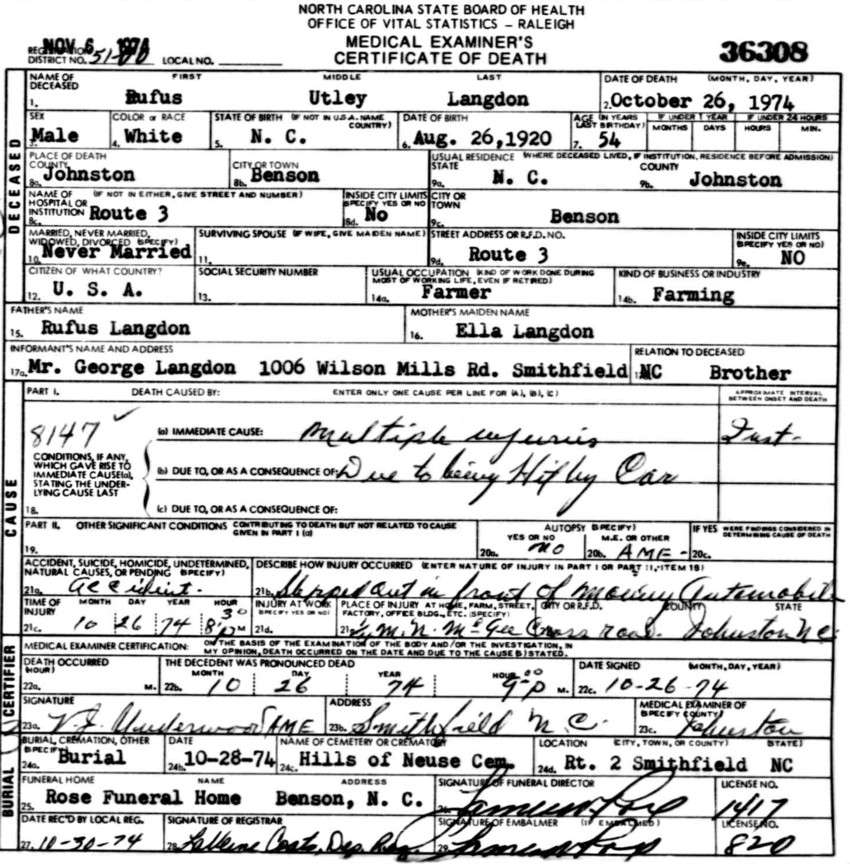 NORTH CAROLINA STATE BOARD OF HEALTH
OFFICE OF VITAL STATISTICS – RALEIGH
MEDICAL EXAMINER'S
CERTIFICATE OF DEATH
NOV 6 1974
REGISTRATION DISTRICT NO. 51-00 LOCAL NO.
36308
DECEASED
NAME OF DECEASED FIRST MIDDLE LAST DATE OF DEATH (MONTH, DAY, YEAR)
1. Rufus Utley Langdon 2. October 26, 1974
SEX COLOR or RACE STATE OF BIRTH (IF NOT IN U.S.A. NAME COUNTRY) DATE OF BIRTH AGE (IN YEARS LAST BIRTHDAY) IF UNDER 1 YEAR MONTHS DAYS IF UNDER 24 HOURS HOURS MIN.
3. Male 4. White 5. N. C. 6. Aug. 26,1920 7. 54
PLACE OF DEATH COUNTY CITY OR TOWN USUAL RESIDENCE (WHERE DECEASED LIVED, IF INSTITUTION, RESIDENCE BEFORE ADMISSION) STATE COUNTY
8a. Johnston 8b. Benson 9a. N. C. 9b. Johnston
NAME OF HOSPITAL OR INSTITUTION (IF NOT IN EITHER, GIVE STREET AND NUMBER) INSIDE CITY LIMITS (SPECIFY YES OR NO) CITY OR TOWN
8c. Route 3 8d. No 9c. Benson
MARRIED, NEVER MARRIED, WIDOWED, DIVORCED (SPECIFY) SURVIVING SPOUSE (IF WIFE, GIVE MAIDEN NAME) STREET ADDRESS OR R.F.D. NO. INSIDE CITY LIMITS (SPECIFY YES OR NO)
10. Never Married 11. 9d. Route 3 9e. NO
CITIZEN OF WHAT COUNTRY? SOCIAL SECURITY NUMBER USUAL OCCUPATION (KIND OF WORK DONE DURING MOST OF WORKING LIFE, EVEN IF RETIRED) KIND OF BUSINESS OR INDUSTRY
12. U. S. A. 13. 14a. Farmer 14b. Farming
FATHER'S NAME MOTHER'S MAIDEN NAME
15. Rufus Langdon 16. Ella Langdon
INFORMANT'S NAME AND ADDRESS RELATION TO DECEASED
17a. Mr. George Langdon 1006 Wilson Mills Rd. Smithfield NC Brother
CAUSE
PART I. DEATH CAUSED BY: ENTER ONLY ONE CAUSE PER LINE FOR (A), (B), (C) APPROXIMATE INTERVAL BETWEEN ONSET AND DEATH
8147
(a) IMMEDIATE CAUSE: Multiple injuries Inst-
CONDITIONS, IF ANY, WHICH GAVE RISE TO IMMEDIATE CAUSE(a), STATING THE UNDERLYING CAUSE LAST
(b) DUE TO, OR AS A CONSEQUENCE OF: Due to being Hit by Car
18. (c) DUE TO, OR AS A CONSEQUENCE OF:
PART II. OTHER SIGNIFICANT CONDITIONS CONTRIBUTING TO DEATH BUT NOT RELATED TO CAUSE GIVEN IN PART I (a) AUTOPSY (SPECIFY) YES OR NO M.E. OR OTHER IF YES WERE FINDINGS CONSIDERED IN DETERMINING CAUSE OF DEATH
19. 20a. NO 20b. AME - 20c.
ACCIDENT, SUICIDE, HOMICIDE, UNDETERMINED, NATURAL CAUSES, OR PENDING (SPECIFY) DESCRIBE HOW INJURY OCCURRED (ENTER NATURE OF INJURY IN PART I OR PART II, ITEM 18)
21a. accident. 21b. Stepped out in front of moving Automobile
TIME OF INJURY MONTH DAY YEAR HOUR INJURY AT WORK (SPECIFY YES OR NO) PLACE OF INJURY AT HOME, FARM, STREET, FACTORY, OFFICE BLDG., ETC. (SPECIFY) CITY OR R.F.D. COUNTY STATE
21c. 10 26 74 8:30 P M 21d. McGee Cross road. Johnston N.C.
CERTIFIER
MEDICAL EXAMINER CERTIFICATION: ON THE BASIS OF THE EXAMINATION OF THE BODY AND/OR THE INVESTIGATION, IN MY OPINION, DEATH OCCURRED ON THE DATE AND DUE TO THE CAUSE(S) STATED.
DEATH OCCURRED (HOUR) THE DECEDENT WAS PRONOUNCED DEAD MONTH DAY YEAR HOUR DATE SIGNED (MONTH, DAY, YEAR)
22a. M. 22b. 10 26 74 9:00 P M. 22c. 10-26-74
SIGNATURE ADDRESS MEDICAL EXAMINER OF (SPECIFY COUNTY)
23a. Underwood AME 23b. Smithfield N.C. 23c. Johnston
BURIAL
BURIAL, CREMATION, OTHER (SPECIFY) DATE NAME OF CEMETERY OR CREMATORY LOCATION (CITY, TOWN, OR COUNTY) STATE)
24a. Burial 24b. 10-28-74 24c. Hills of Neuse Cem. 24d. Rt. 2 Smithfield NC
FUNERAL HOME NAME ADDRESS SIGNATURE OF FUNERAL DIRECTOR LICENSE NO.
25. Rose Funeral Home Benson, N. C. 26. 1417
DATE REC'D BY LOCAL REG. SIGNATURE OF REGISTRAR SIGNATURE OF EMBALMER (IF EMBALMED) LICENSE NO.
27. 10-30-74 28. Coats, Dep. Reg. 29. 820